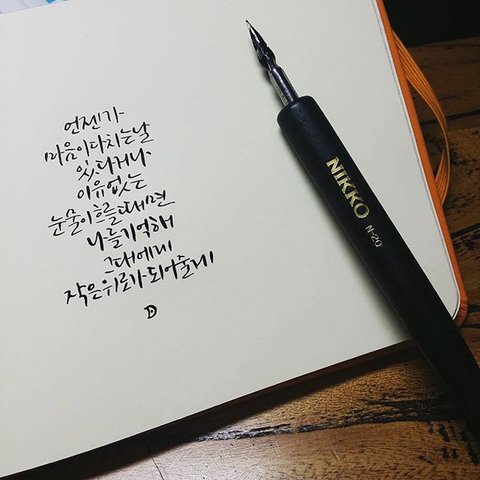 언젠가
마음이 다치는 날
있다거나
이유없는
눈물이 흐를 때면
나를 기억해
그대에게
작은 위로가 되어줄게
D
NIKKO
N-20